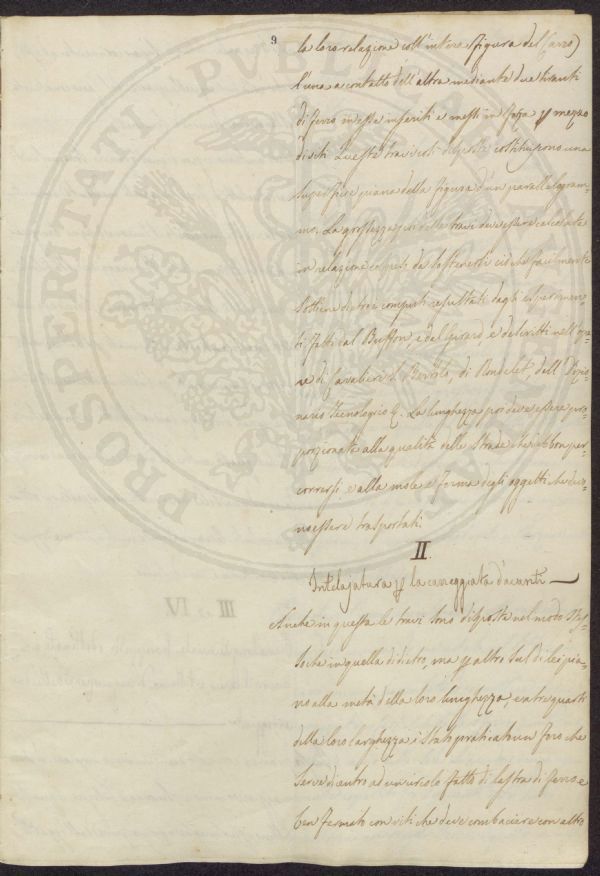 9
la loro relazione coll'intero (figura del Carro)
l'una a contatto dell'altra mediante due tiranti
di ferro in essa inseriti e messi in forza p mezzo
di viti. Queste travi così disposte costituiscono una
superficie piana della figura d'un parallelogram-
mo. La grossezza poi delle travi deve essere calcolata
in relazione ai pesi da sostenersi ciò che facilmente
sottiene dietro i computi resultati dagli esperimen-
ti fatti dal Buffon, e dal Girard, e descritti nell'ope-
re di Cavalieri S. Bertolo, di Rondelet, dell Dizio-
nario Tecnologio &. La lunghezza poi deve essere pro-
porzionata alla qualità delle Strade che debbon per-
corrersi, e alla mole e forma degli oggetti che dev-
no essere trasportati.
II.
Intelajatura p la carreggiata d'avanti
Anche in questa le travi sono disposte nel modo stes-
so che in quella di dietro, ma p altro sul di lei pia-
no alla metà della loro lunghezza, e a tre quarti
della loro larghezza è stato praticato un foro che
serve di centro ad un circolo fatto di lastra di ferro e
ben fermato con viti che deve combaciare con altro
III IV
PROSPERITATI PVBLICAE